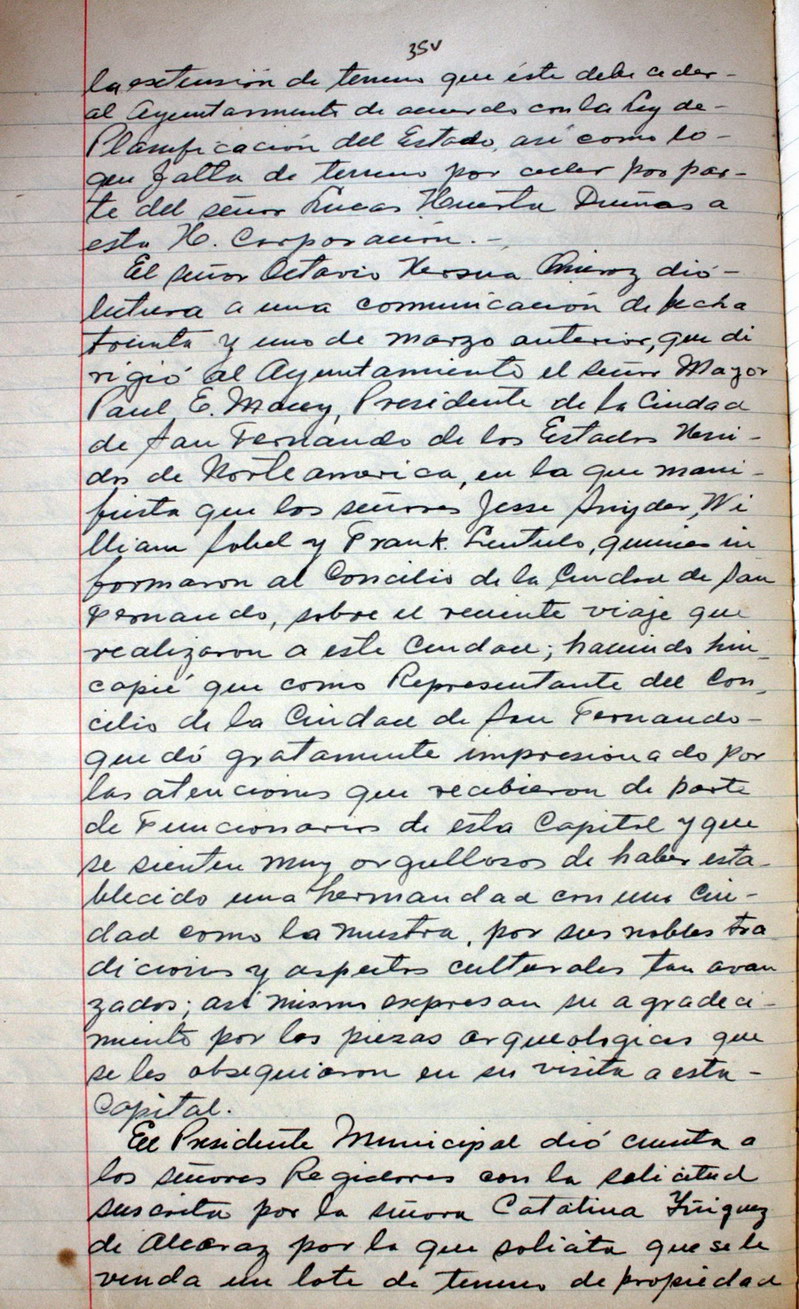 35v
la extensión de terreno que éste debe ceder-
al Ayuntamiento de acuerdo con la Ley de-
Planificación del Estado, así como lo-
que falta de terreno por ceder por par-
te del señor Lucas Huerta Dueñas a
esta H. Corporación.-
El señor Octavio dió-
lectura a una comunicación de fecha
treinta y uno de marzo anterior, que di
rigió al Ayuntamiento el señor Mayor
Paul E. Macey, Presidente de la Ciudad
de San Fernando de los Estados Uni-
dos de Norteamerica, en la que mani-
fiesta que los señores Jesse Snyder, Wi
lliam Sobel y Frank Lentulo, quienes in
formaron al Concilio de la Ciudad de San
Fernando, sobre el reciente viaje que
realizaron a este Ciudad; haciendo hin_
capié que como Representante del Con_
cilio de la Ciudad de San Fernando-
quedó gratamente impresionado por
las atenciones que recibieron de parte
de Funcionarios de esta Capital y que
se sienten muy orgullosos de haber esta-
blecido una hermandad con una Ciu-
dad como la nuestra, por sus nobles tra
diciones y aspectos culturales tan avan
zados; así mismo expresan su agradeci-
miento por las piezas arqueologicas que
se les obsequiaron en su visita a esta-
Capital.
El Presidente Municipal dió cuenta a
los señores Regidores con la solicitud
suscrita por la señora Catalina Yñiguez
de Alcaraz por la que solicita que se le
venda un lote de terreno de propiedad